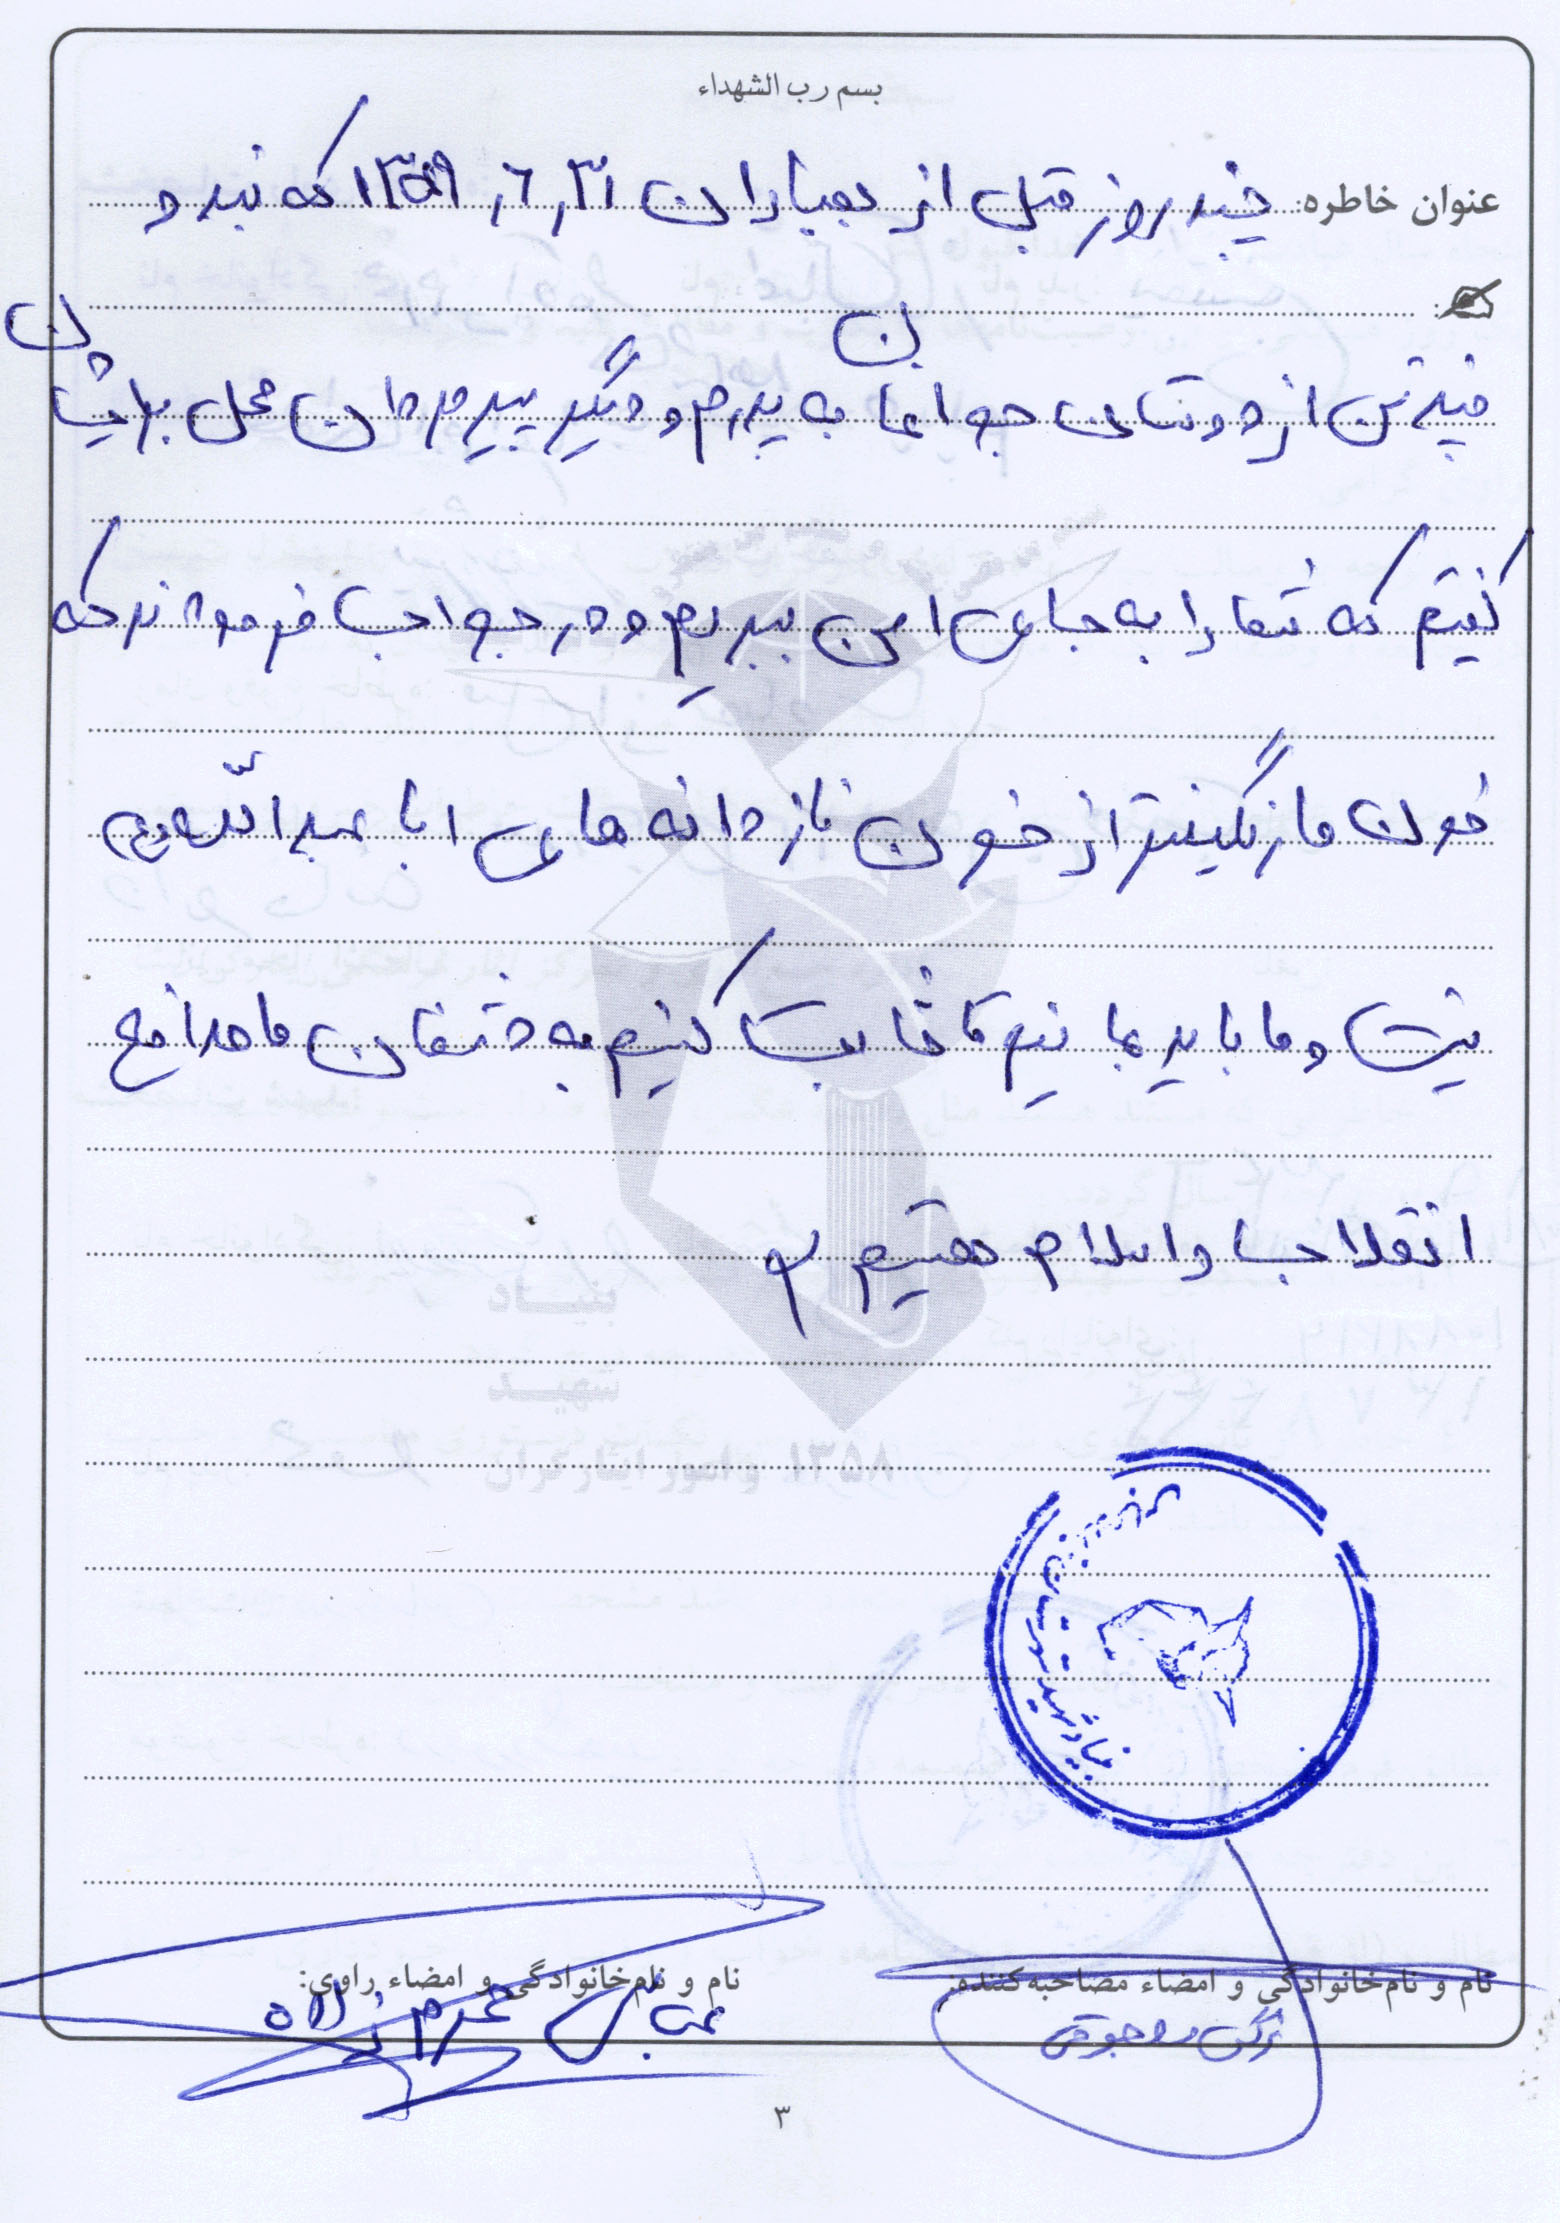 بسم رب الشهداء
عنوان خاطره: چند روز قبل از بمباران ۱۳۵۹٫۶٫۳۱ که بنده و
چند تن از دوستان جوانمان به پدرم و دیگر پیرمردان محل برایشان
گفتیم که شما را به جای امن ببریم و در جواب فرمودند که
خون ما رنگینتر از خون نازدانه های ابا عبدالله
نیست و ما باید بمانیم تا ثابت کنیم به دشمنان ما مدافع
انقلاب و اسلام هستیم
بنیاد
شهید
و امور ایثارگران ۱۳۵۸
بنیاد شهید
نام و نام‌خانوادگی و امضاء مصاحبه‌کننده:
نام و نام‌خانوادگی و امضاء راوی:
عباس محرم زاده
۳